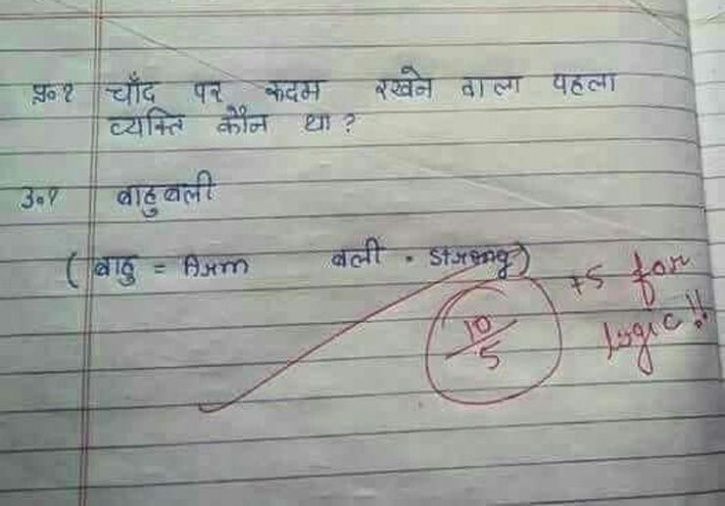 प्र॰१ चाँद पर कदम रखने वाला पहला
व्यक्ति कौन था ?
उ॰१ बाहुबली
( बाहु = Arm बली = Strong )
10/5 +5 for
logic !!